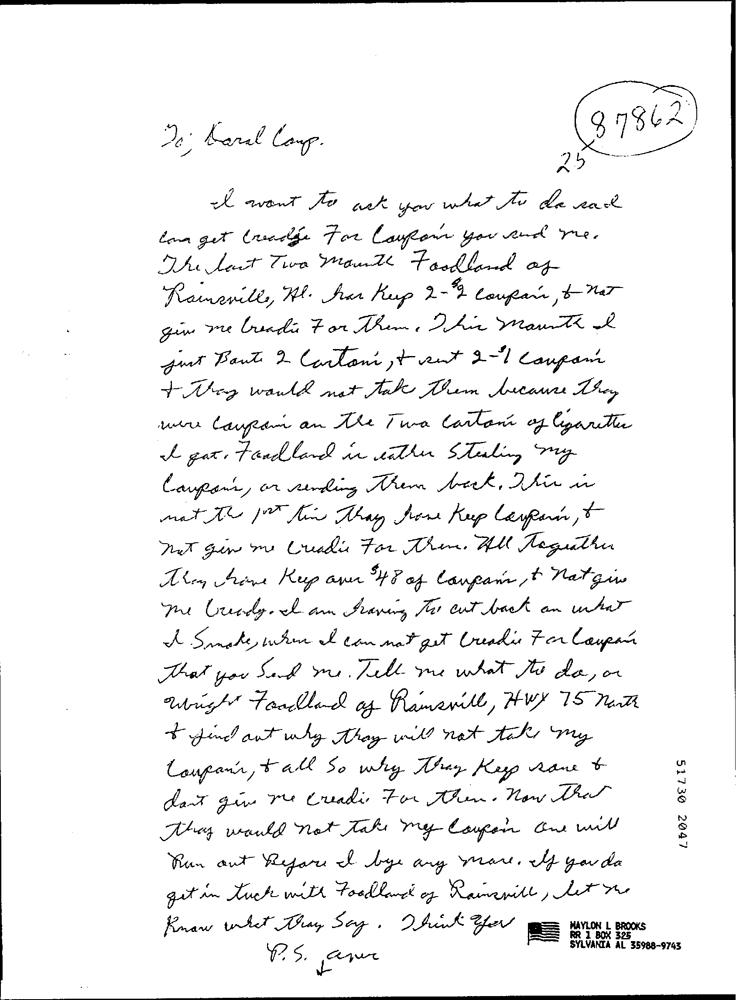 87862
25
To; Doral Comp.
I want to ask you what to do so I
can get Creadie For Coupon's you send me.
The last Two Mounth Foodland of
Rainsville, Al. has Keep 2-$2 Coupon's, & Not
give me Creadie For Them. This Mounth I
just Boute 2 Cartons, & sent 2-$1 Coupon's
& Thay would not take Them because Thay
were Coupon's on The Two Cartons of Cigarettes
I got. Foodland is eather Stealing my
Coupon's, or sending Them back. This is
not The 1st Time Thay have Keep Coupon's, &
Not give me Creadie For Them. All Togeather
Thay have Keep over $48 of Coupon's, & Not give
me Cready. I am having To cut back on what
I Smoke, when I can not get Creadie For Coupon's
That you Send me. Tell me what to do, or
Wright Foodland of Rainsville, HWY 75 North
& find out why Thay will not take my
Coupon's, & all So why Thay Keep some &
don't give me Creadie For Them. Now That
Thay would Not Take my Coupon's one will
Run out Before I bye any more. If you do
get in tuch with Foodland of Rainsville, let me
Know what Thay Say. Think You
MAYLON L BROOKS
RR 1 BOX 325
SYLVANIA AL 35988-9743
P.S. over
51730 2047